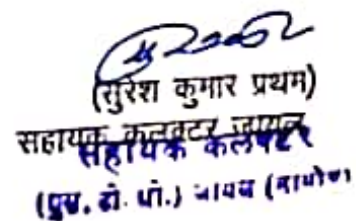 (सुरेश कुमार प्रथम)
सहायक कलक्टर जायल
सहायक कलक्टर
(एस. डी. ओ.) जायल (नागौर)